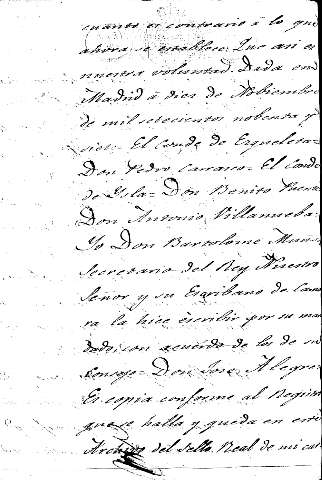 cuanto es contrario á lo que
ahora se establece: Que asi es
nuestra voluntad. Dada en
Madrid á dies de Nobiembre
de mil setecientos nobenta y
sies - El Conde de Ezqueleta-
Don Pedro Carrasco - El Conde
de Ysla - Don Benito Puente
Don Antonio Villanueba-
Yo Don Bartolome Mun-
Secretario del Rey Nuestro
Señor y su Escribano de Cama
ra la hice escribir por su man
dado, con acuerdo de los de su
Consejo - Don Jose Alegre-
Es copia conforme al Registro
que se halla y queda en este
Archivo del Sello Real de mi car